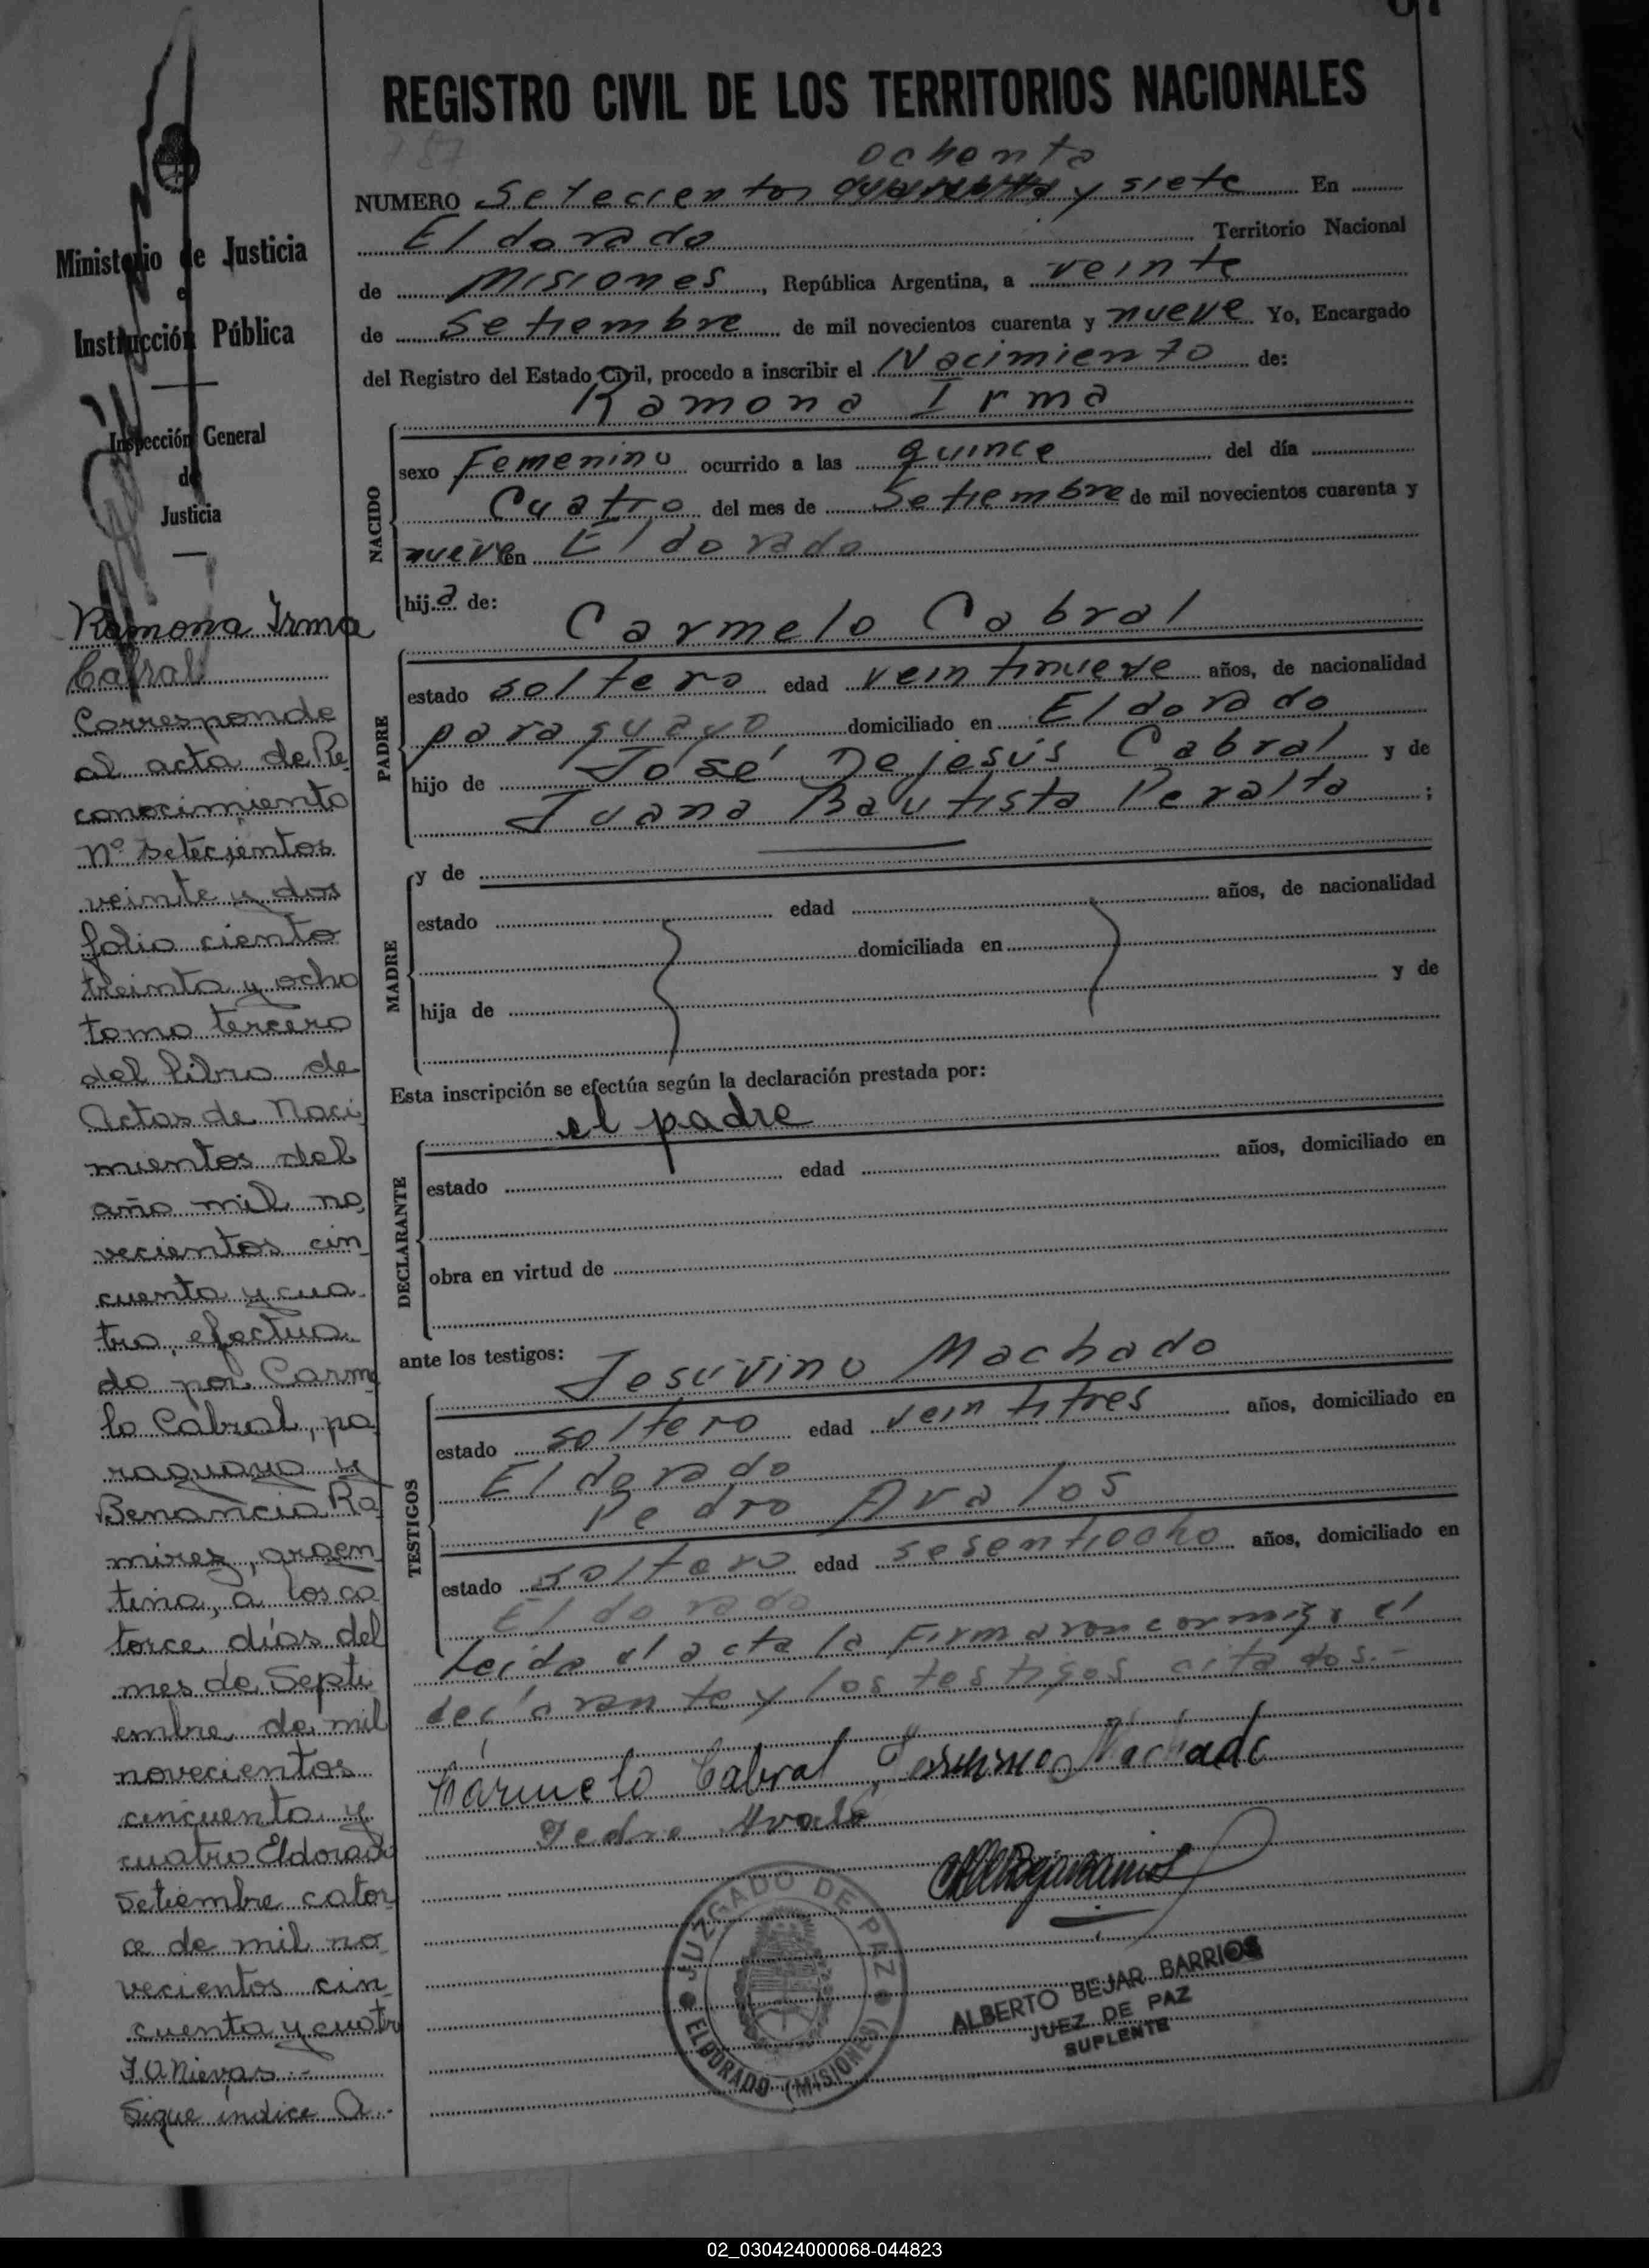 REGISTRO CIVIL DE LOS TERRITORIOS NACIONALES
787
ochenta
NUMERO Setecientos y siete En
Eldorado Territorio Nacional
de Misiones, República Argentina, a veinte
de Setiembre de mil novecientos cuarenta y nueve Yo, Encargado
del Registro del Estado Civil, procedo a inscribir el Nacimiento de:
Ramona Irma
NACIDO
sexo Femenino ocurrido a las quince del día
Cuatro del mes de Setiembre de mil novecientos cuarenta y
nueve en Eldorado
hij a de:
Carmelo Cabral
PADRE
estado soltero edad veintinueve años, de nacionalidad
paraguayo domiciliado en Eldorado
hijo de José Dejesús Cabral y de
Juana Bautista Peralta ;
MADRE
y de
estado edad años, de nacionalidad
domiciliada en
hija de y de
Esta inscripción se efectúa según la declaración prestada por:
el padre
DECLARANTE
estado edad años, domiciliado en
obra en virtud de
ante los testigos:
Jesuvino Machado
TESTIGOS
estado soltero edad veintitres años, domiciliado en
Eldorado
Pedro Avalos
estado soltero edad sesentiocho años, domiciliado en
Eldorado
Leida el acta la Firmaron conmigo el
declarante y los testigos citados.-
Cármelo Cabral Machado
Pedro
JUZGADO DE PAZ
ELDORADO (MISIONES)
ALBERTO BEJAR BARRIOS
JUEZ DE PAZ
SUPLENTE
Ministerio de Justicia
e
Instrucción Pública
Inspección General
de
Justicia
Ramona Irma
Cabral
Corresponde
al acta de Re
conocimiento
Nº setecientos
veinte y dos
folio ciento
treinta y ocho
tomo tercero
del libro de
Actas de Naci
mientos del
año mil no
vecientos cin
cuenta y cua
tro, efectua
do por Carm
lo Cabral, pa
raguayo y
Benancia Ra
mirez, argen
tina, a los ca
torce días del
mes de Septi
embre de mil
novecientos
cincuenta y
cuatro Eldorado
Setiembre cator
ce de mil no
vecientos cin
cuenta y cuatro
J.A Nievas.-
Sigue indice A.-
02_030424000068-044823